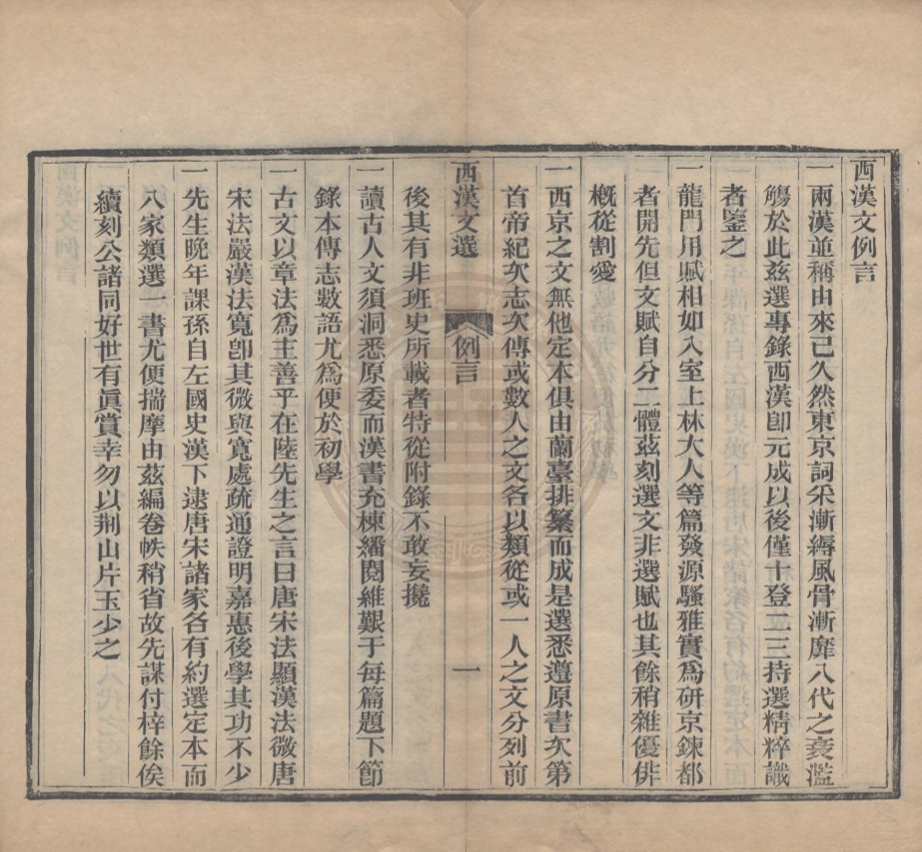 西漢文例言
一兩漢並稱由來已久然東京詞采漸縟風骨漸靡八代之衰濫
觴於此茲選專錄西漢卽元成以後僅十登二三持選精粹識
者鑒之
一龍門用賦相如入室上林大人等篇發源騷雅實爲研京鍊都
者開先但文賦自分二體茲刻選文非選賦也其餘稍雜優俳
槪從割愛
一西京之文無他定本俱由蘭臺排纂而成是選悉遵原書次第
首帝紀次志次傳或數人之文各以類從或一人之文分列前
西漢文選
例言
一
後其有非班史所載者特從附錄不敢妄攙
一讀古人文須洞悉原委而漢書充棟繙閱維艱于每篇題下節
錄本傳志數語尤爲便於初學
一古文以章法爲主善乎在陸先生之言曰唐宋法顯漢法微唐
宋法嚴漢法寬卽其微與寬處疏通證明嘉惠後學其功不少
一先生晚年課孫自左國史漢下逮唐宋諸家各有約選定本而
八家類選一書尤便揣摩由茲編卷帙稍省故先謀付梓餘俟
續刻公諸同好世有眞賞幸勿以荆山片玉少之